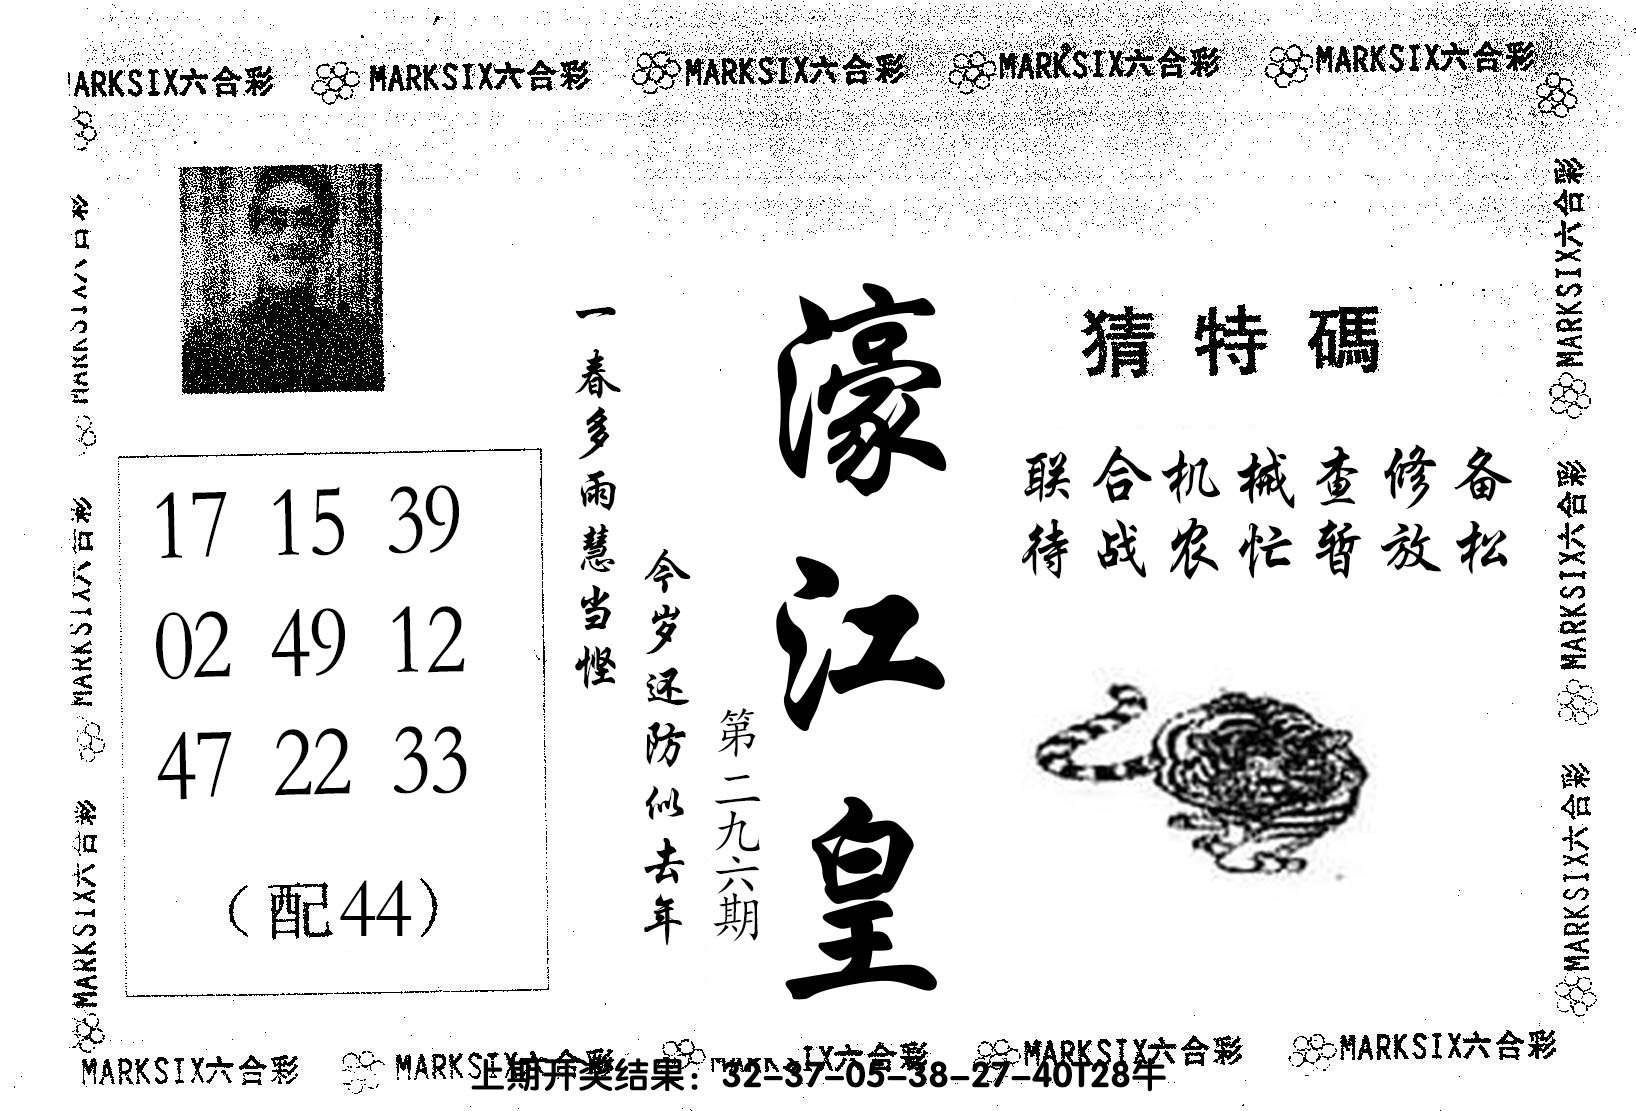 MARKSIX六合彩 MARKSIX六合彩 MARKSIX六合彩 MARKSIX六合彩 MARKSIX六合彩
猜特碼
联合机械查修备
待战农忙暂放松
濠江皇
第二九六期
一春多雨慧当悭
今岁还防似去年
17 15 39
02 49 12
47 22 33
（配44）
MARKSIX六合彩
MARKSIX六合彩
MARKSIX六合彩
MARKSIX六合彩
MARKSIX六合彩
MARKSIX六合彩
MARKSIX六合彩 MARKSIX六合彩 MARKSIX六合彩 MARKSIX六合彩
上期开奖结果：32-37-05-38-27-40T28牛